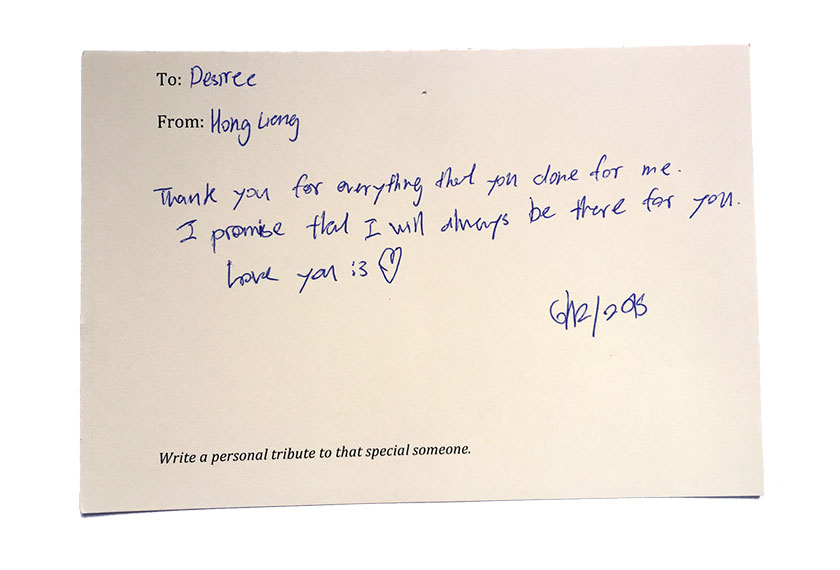 To: Desiree
From: Hong Liang
Thank you for everything that you done for me.
I promise that I will always be there for you.
Love you :3 ♡
6/12/2015
Write a personal tribute to that special someone.